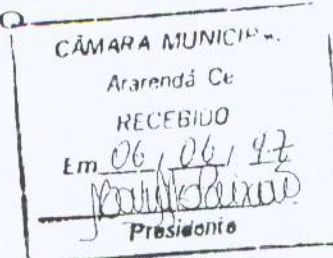 CÂMARA MUNICIPAL
Ararendá Ce
RECEBIDO
Em 06 / 06 / 97
Presidente